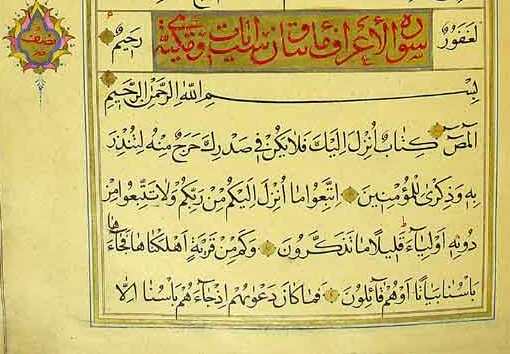 نصف
لَغَفُورٌ سورة الأعراف مائتان آيات ومكية رَحِيمٌ
بِسْمِ اللهِ الرَّحْمٰنِ الرَّحِيمِ
الٓمٓصٓ كِتَابٌ أُنْزِلَ إِلَيْكَ فَلَا يَكُنْ فِي صَدْرِكَ حَرَجٌ مِنْهُ لِتُنْذِرَ
بِهِ وَذِكْرَىٰ لِلْمُؤْمِنِينَ اتَّبِعُوا مَا أُنْزِلَ إِلَيْكُمْ مِنْ رَبِّكُمْ وَلَا تَتَّبِعُوا مِنْ
دُونِهِ أَوْلِيَاءَ قَلِيلًا مَا تَذَكَّرُونَ وَكَمْ مِنْ قَرْيَةٍ أَهْلَكْنَاهَا فَجَاءَهَا
بَأْسُنَا بَيَاتًا أَوْ هُمْ قَائِلُونَ فَمَا كَانَ دَعْوٰيهُمْ إِذْ جَاءَهُمْ بَأْسُنَا إِلَّا